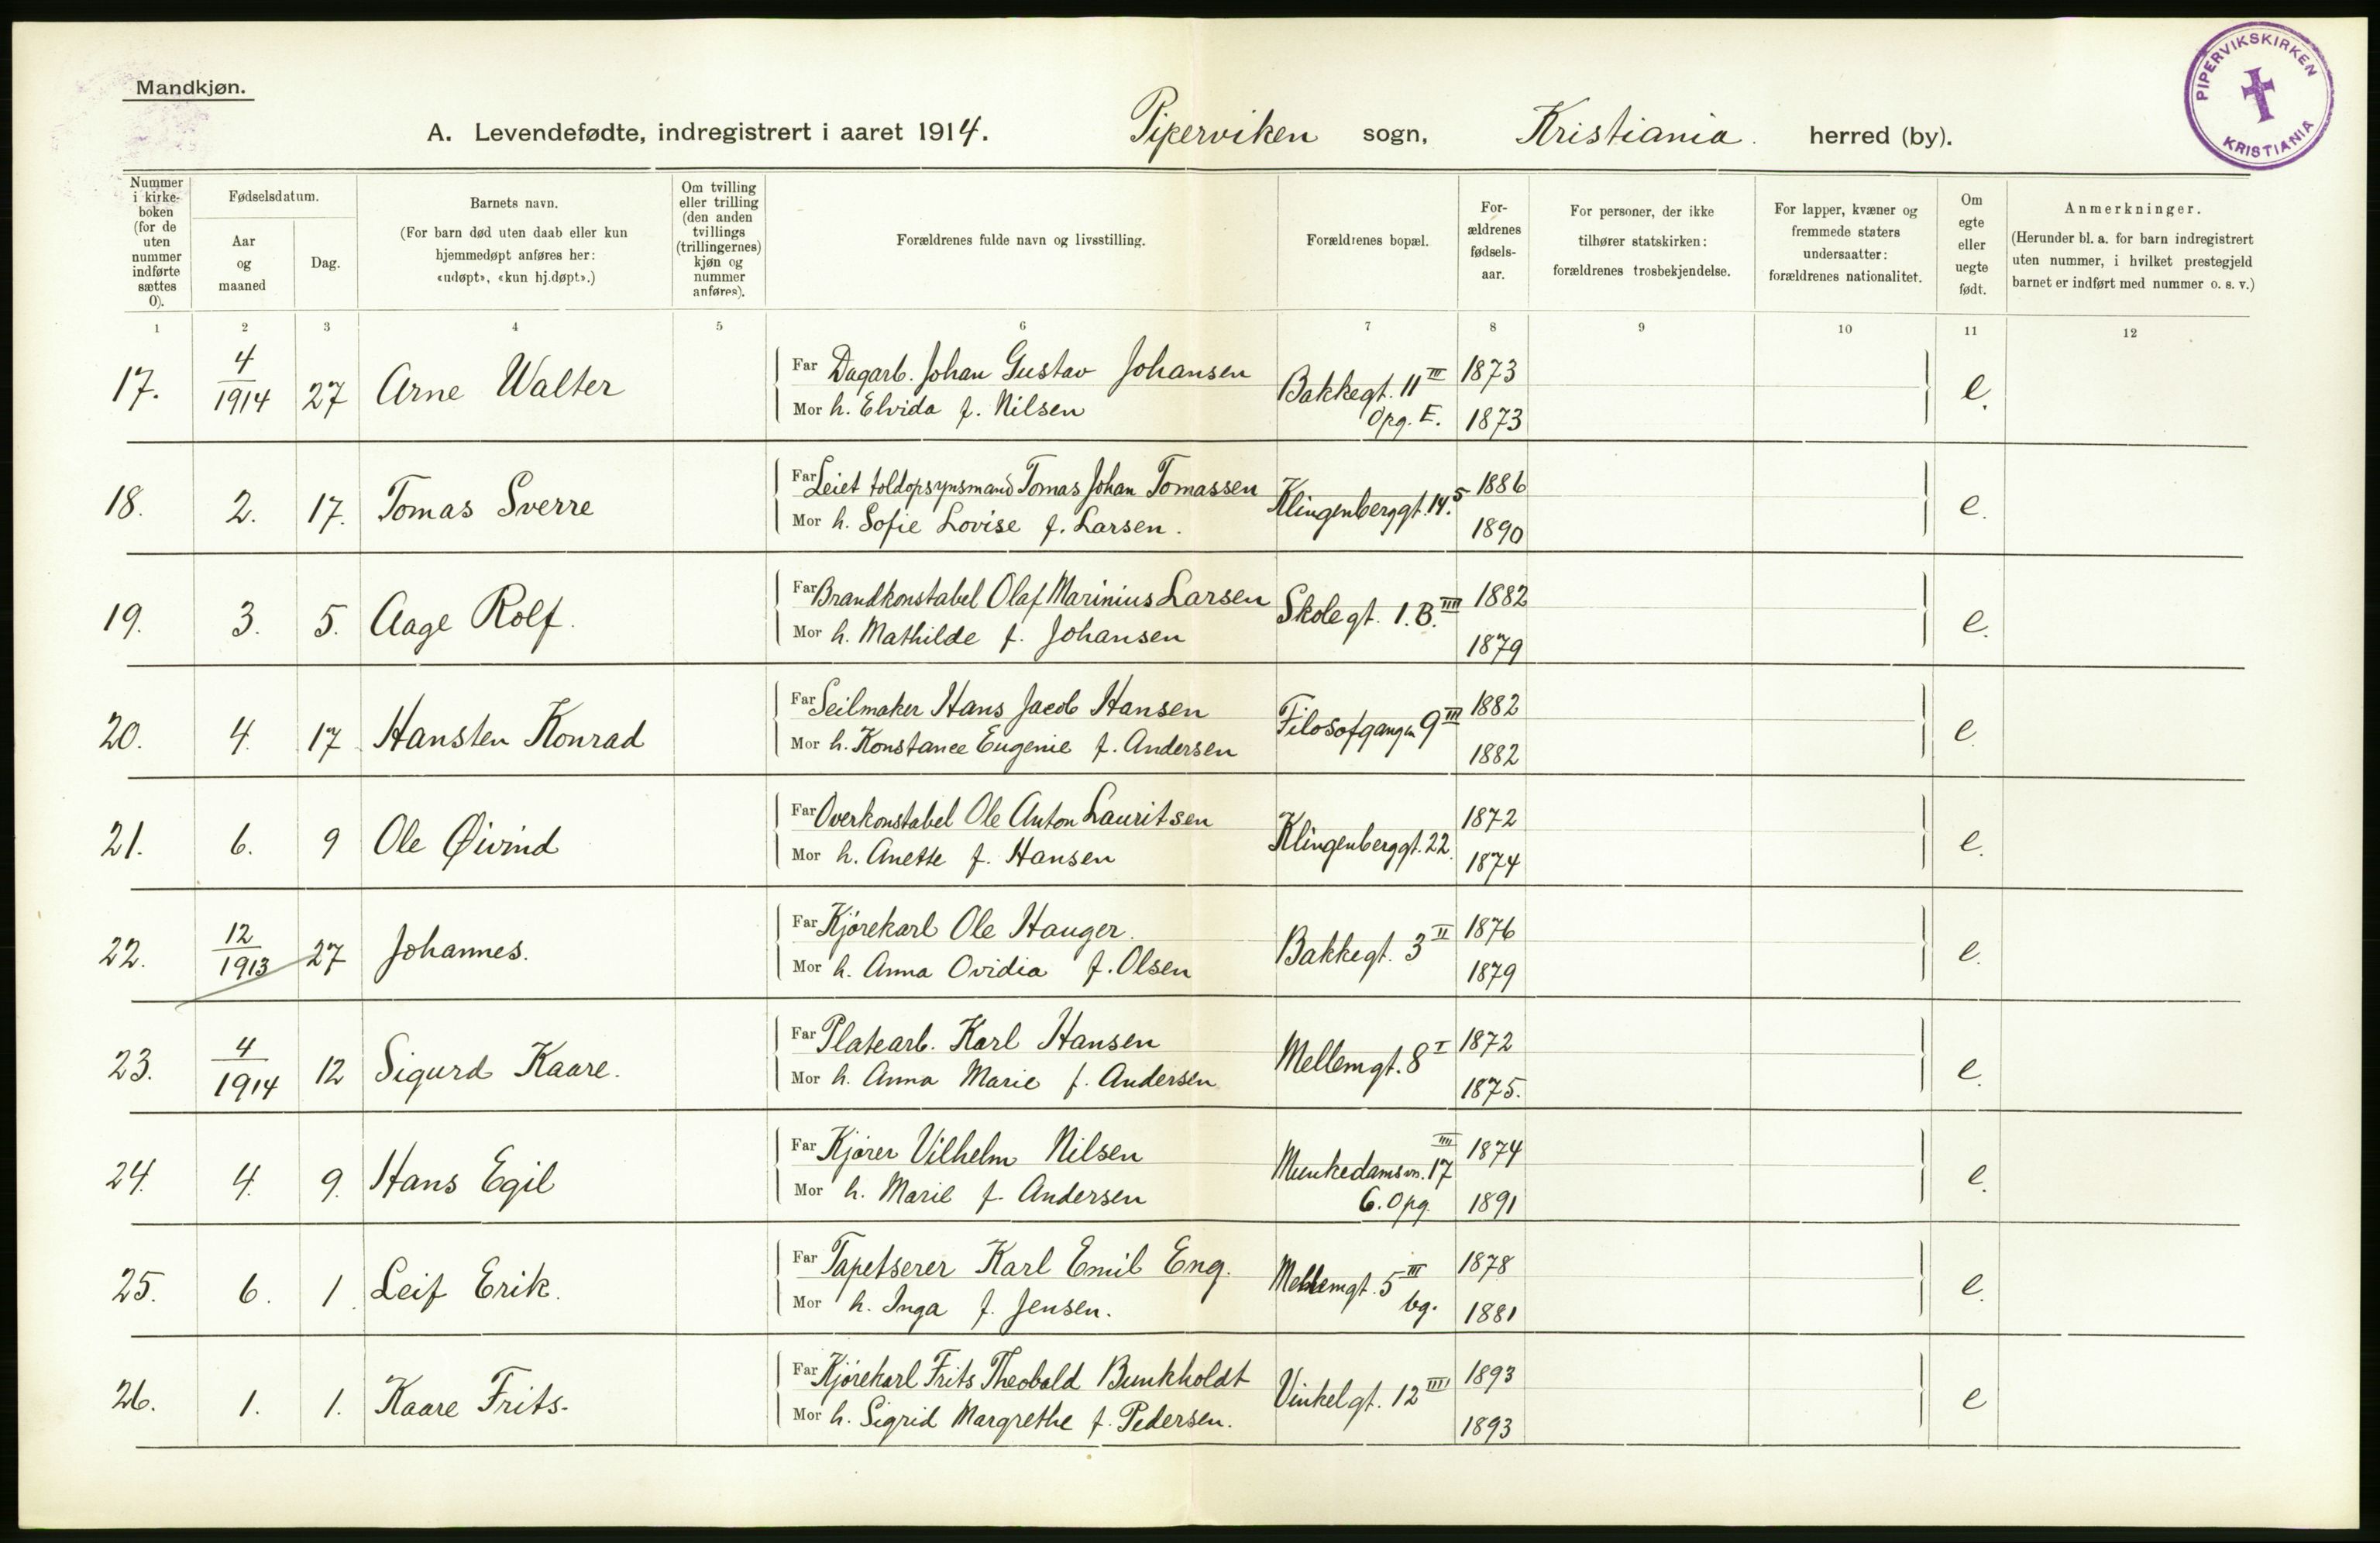 Mandkjøn.
A. Levendefødte, indregistrert i aaret 1914. Piperviken sogn, Kristiania. herred (by).
PIPERVIKSKIRKEN
KRISTIANIA
Nummer
i kirke-
boken
(for de
uten
nummer
indførte
sættes
0).
Fødselsdatum.
Aar
og
maaned
Dag.
Barnets navn.
(For barn død uten daab eller kun
hjemmedøpt anføres her:
«udøpt», «kun hj.døpt».)
Om tvilling
eller trilling
(den anden
tvillings
(trillingernes)
kjøn og
nummer
anføres).
Forældrenes fulde navn og livsstilling.
Forældrenes bopæl.
For-
ældrenes
fødsels-
aar.
For personer, der ikke
tilhører statskirken:
forældrenes trosbekjendelse.
For lapper, kvæner og
fremmede staters
undersaatter:
forældrenes nationalitet.
Om
egte
eller
uegte
født.
Anmerkninger.
(Herunder bl. a. for barn indregistrert
uten nummer, i hvilket prestegjeld
barnet er indført med nummer o. s. v.)
1 2 3 4 5 6 7 8 9 10 11 12
17. 4/1914 27 Arne Walter
Far Dagarb. Johan Gustav Johansen
Mor h. Elvida f. Nilsen
Bakkegt. 11 III
Opg. E.
1873
1873
e.
18. 2. 17. Tomas Sverre
Far Leiet toldopsynsmand Tomas Johan Tomassen
Mor h. Sofie Lovise f. Larsen.
Klingenberggt. 14.5
1886
1890
e.
19. 3. 5. Aage Rolf.
Far Brandkonstabel Olaf Marinius Larsen
Mor h. Mathilde f. Johansen
Skolegt. 1.B. IIII
1882
1879
e.
20. 4. 17 Hansten Konrad
Far Seilmaker Hans Jacob Hansen
Mor h. Konstance Eugenie f. Andersen
Filosofgangen 9 III
1882
1882
e.
21. 6. 9 Ole Øivind
Far Overkonstabel Ole Anton Lauritsen
Mor h. Anette f. Hansen
Klingenberggt. 22.
1872
1874
e.
22. 12/1913 27 Johannes.
Far Kjörekarl Ole Hauger.
Mor h. Anna Ovidia f. Olsen
Bakkegt. 3 II
1876
1879
e.
23. 4/1914 12 Sigurd Kaare.
Far Platearb. Karl Hansen
Mor h. Anna Marie f. Andersen
Mellemgt. 8 I
1872
1875.
e.
24. 4. 9. Hans Egil
Far Kjörer Vilhelm Nilsen
Mor h. Marie f. Andersen
Munkedamsvn. 17 IIII
6. Opg.
1874
1891
e.
25. 6. 1. Leif Erik.
Far Tapetserer Karl Emil Eng.
Mor h. Inga f. Jensen.
Mellemgt. 5 III
bg.
1878
1881
e.
26. 1. 1. Kaare Frits.
Far Kjörekarl Frits Theobald Bunkholdt
Mor h. Sigrid Margrethe f. Pedersen.
Vinkelgt. 12 IIII
1893
1893
e